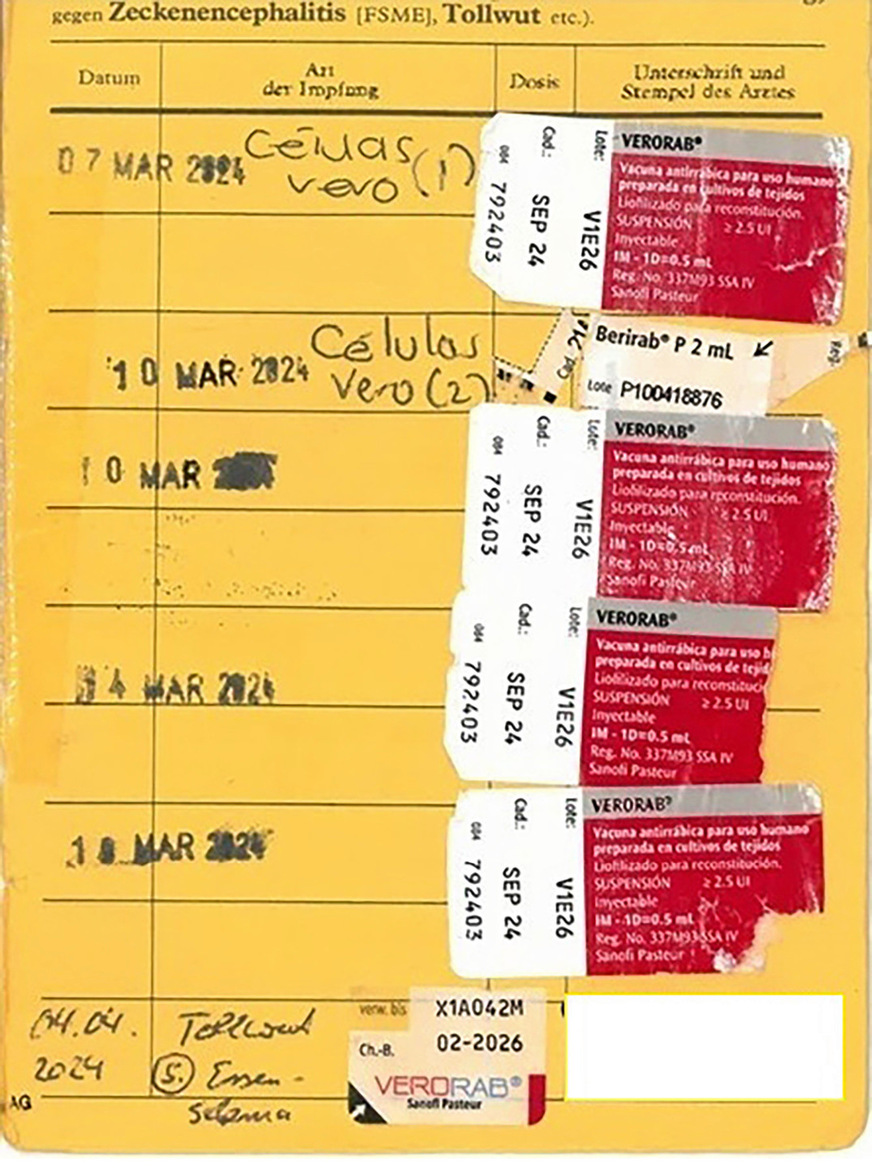 gegen Zeckenencephalitis [FSME], Tollwut etc.).
Datum
Art
der Impfung
Dosis
Unterschrift und
Stempel des Arztes
07 MAR 2024
Células
vero (1)
084 792403
Cad.: SEP 24
Lote: V1E26
VERORAB®
Vacuna antirrábica para uso humano
preparada en cultivos de tejidos
Liofilizado para reconstitución.
SUSPENSIÓN ≥ 2.5 UI
Inyectable
IM - 1D=0.5 mL
Reg. No. 337M93 SSA IV
Sanofi Pasteur
10 MAR 2024
Células
Vero (2)
Berirab® P 2 mL
Lote P100418876
Reg.
10 MAR
084 792403
Cad.: SEP 24
Lote: V1E26
VERORAB®
Vacuna antirrábica para uso humano
preparada en cultivos de tejidos
Liofilizado para reconstitución.
SUSPENSIÓN ≥ 2.5 UI
Inyectable
IM - 1D=0.5 mL
Reg. No. 337M93 SSA IV
Sanofi Pasteur
4 MAR 2024
084 792403
Cad.: SEP 24
Lote: V1E26
VERORAB®
Vacuna antirrábica para uso h
preparada en cultivos de tejid
Liofilizado para reconstituci
SUSPENSIÓN ≥ 2.5 UI
Inyectable
IM - 1D=0.5 mL
Reg. No. 337M93 SSA IV
Sanofi Pasteur
MAR 2024
084 792403
Cad.: SEP 24
Lote: V1E26
VERORAB®
Vacuna antirrábica para uso humano
preparada en cultivos de tejidos
Liofilizado para reconstitución.
SUSPENSIÓN ≥ 2.5 UI
Inyectable
IM - 1D=0.5 mL
Reg. No. 337M93 SSA IV
Sanofi Pasteur
04.04.
2024
Tollwut
(5.) Essen-
verw. bis X1A042M
Ch.-B. 02-2026
VERORAB®
Sanofi Pasteur
AG